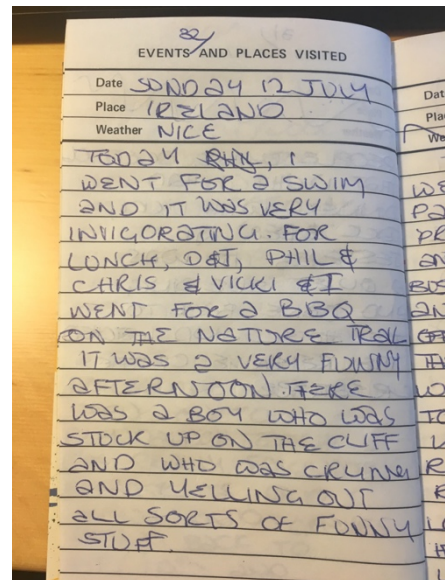 32
EVENTS AND PLACES VISITED
Date SUNDAY 12 JULY
Place IRELAND
Weather NICE
TODAY PHIL, I
WENT FOR A SWIM
AND IT WAS VERY
INVIGORATING. FOR
LUNCH, D&J, PHIL &
CHRIS & VICKI & I
WENT FOR A BBQ
ON THE NATURE TRAIL
IT WAS A VERY FUNNY
AFTERNOON. THERE
WAS A BOY WHO WAS
STUCK UP ON THE CLIFF
AND WHO WAS CRYING
AND YELLING OUT
ALL SORTS OF FUNNY
STUFF.